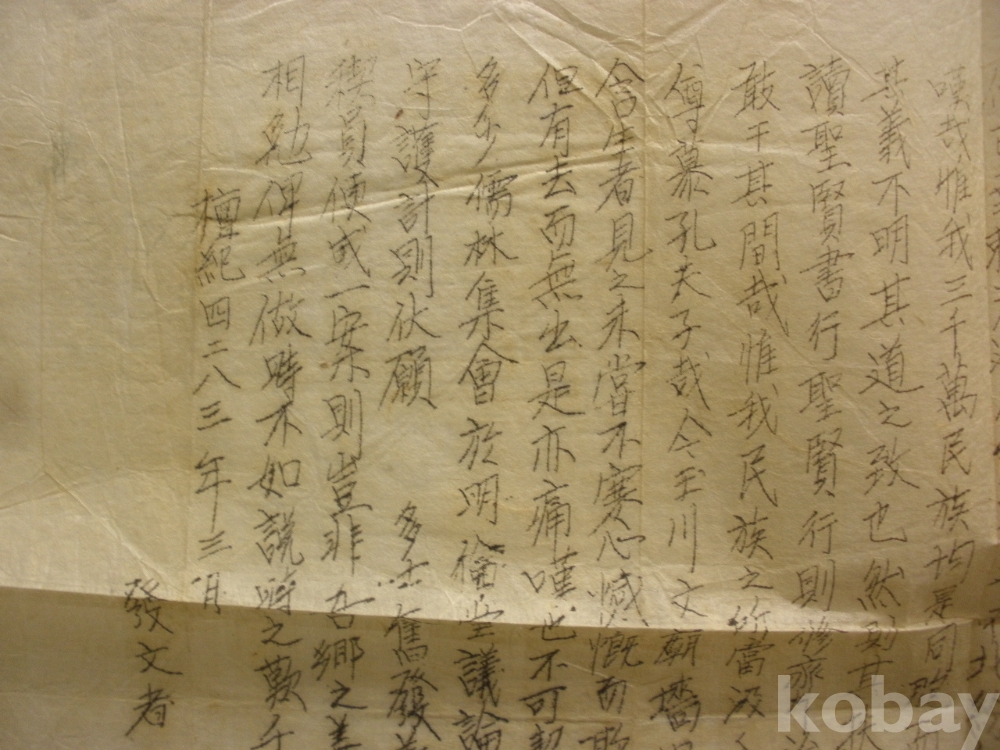 嘆哉惟我三千萬民族均是同
其義不明其道之致也然則
讀聖賢書行聖賢行則修齊
敢干其間哉惟我民族之所當
傳慕孔夫子哉今玉川文廟墻
含生者見之未嘗不寒心慽慨而
但有去而無出是亦痛嘆也不可
多少儒林集會於明倫堂議論
守護計則伏願 多士奮發
使或一案則豈非吾鄕之美
相勉俾無做時不如說時之歎千
檀紀四二八三年三月
發文者
kobay